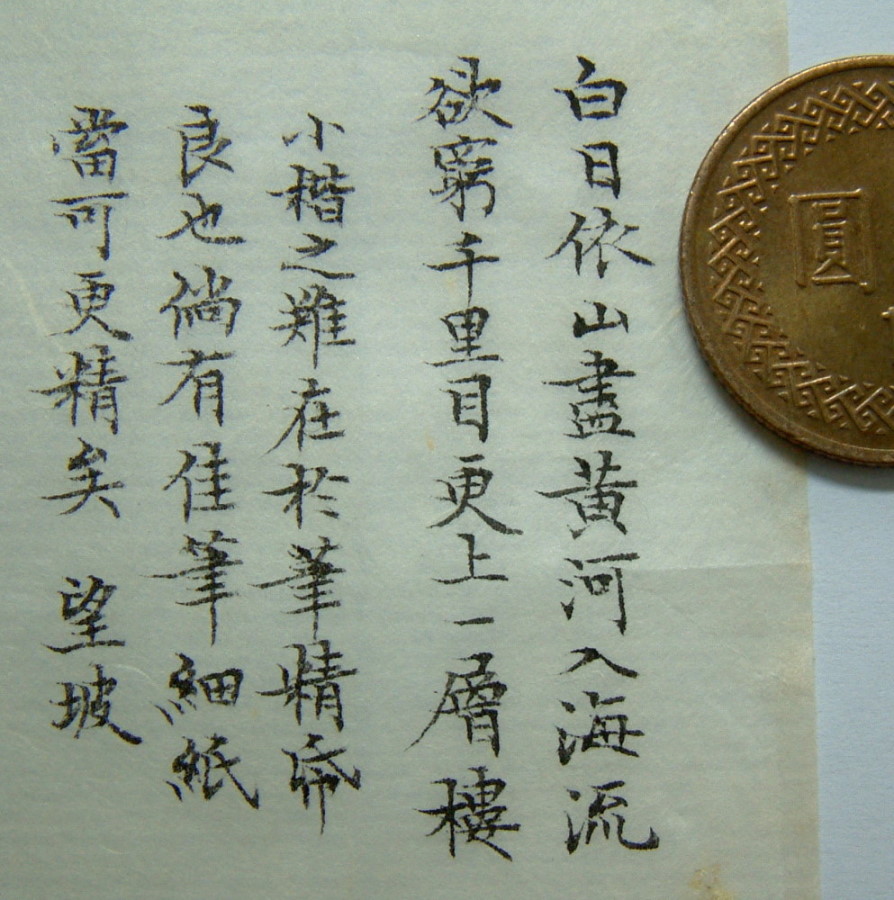 白日依山盡黃河入海流
欲窮千里目更上一層樓
小楷之難在於筆精帋
良也倘有佳筆細紙
當可更精矣 望坡
圓